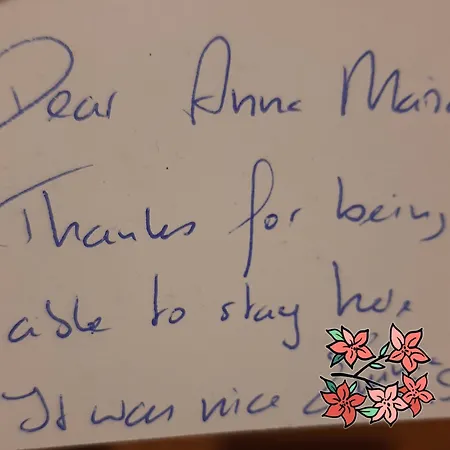 Dear Anne
Thanks for being
able to stay here
It was nice